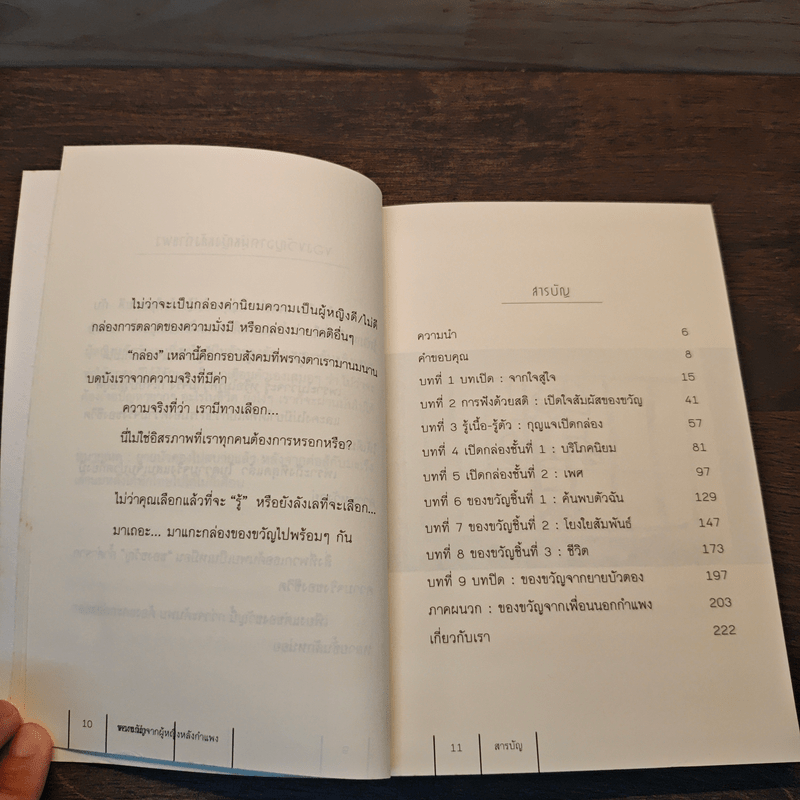 ไม่ว่าจะเป็นกล่องค่านิยมความเป็นผู้หญิงดี/ไม่ดี
กล่องการตลาดของความมั่งมี หรือกล่องมายาคติอื่นๆ
“กล่อง” เหล่านี้คือกรอบสังคมที่พรางตาเรามานมนาน
บดบังเราจากความจริงที่มีค่า
ความจริงที่ว่า เรามีทางเลือก...
นี่ไม่ใช่อิสรภาพที่เราทุกคนต้องการหรอกหรือ?
ไม่ว่าคุณเลือกแล้วที่จะ “รู้” หรือยังลังเลที่จะเลือก...
มาเถอะ... มาแกะกล่องของขวัญไปพร้อมๆ กัน
10 ของขวัญจากผู้หญิงหลังกำแพง
สารบัญ
ความนำ 6
คำขอบคุณ 8
บทที่ 1 บทเปิด : จากใจสู่ใจ 15
บทที่ 2 การฟังด้วยสติ : เปิดใจสัมผัสของขวัญ 41
บทที่ 3 รู้เนื้อ-รู้ตัว : กุญแจเปิดกล่อง 57
บทที่ 4 เปิดกล่องชั้นที่ 1 : บริโภคนิยม 81
บทที่ 5 เปิดกล่องชั้นที่ 2 : เพศ 97
บทที่ 6 ของขวัญชิ้นที่ 1 : ค้นพบตัวฉัน 129
บทที่ 7 ของขวัญชิ้นที่ 2 : โยงใยสัมพันธ์ 147
บทที่ 8 ของขวัญชิ้นที่ 3 : ชีวิต 173
บทที่ 9 บทปิด : ของขวัญจากยายบัวตอง 197
ภาคผนวก : ของขวัญจากเพื่อนนอกกำแพง 203
เกี่ยวกับเรา 222
11 สารบัญ